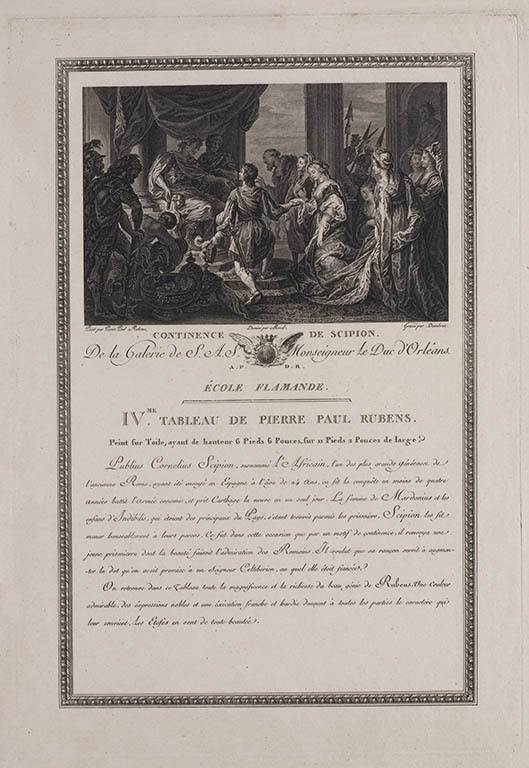 Peint par Pierre Paul Rubens. Dessiné par Morel. Gravé par Dambrun.
CONTINENCE DE SCIPION.
De la Galerie de S. A. S. Monseigneur le Duc d'Orléans.
A.P.D.R.
ÉCOLE FLAMANDE.
IV.ME TABLEAU DE PIERRE PAUL RUBENS.
Peint sur Toile, ayant de hauteur 6 Pieds 6 Pouces, sur 11 Pieds 2 Pouces de large.
Publius Cornelius Scipion, surnommé L'Africain, l'un des plus grands Généraux de
l'ancienne Rome, ayant été envoyé en Espagne à l'âge de 24 Ans, en fit la conquête en moins de quatre
Années battit l'Armée ennemie, et prit Carthage la neuve en un seul jour. La femme de Mardonius et les
enfans d'Indibilis, qui étoient des principaux du Pays, s'étant trouvés parmis les prisonniers, Scipion les fit
mener honorablement à leurs parens. Ce fut dans cette occasion que par un motif de continence, il renvoya une
jeune prisonnière dont la beauté faisoit l'admiration des Romains. Il voulut que sa rançon servit à augmen-
ter la dot qu'on avoit promise à un Seigneur Celtiberien, au quel elle étoit fiancée.
On retrouve dans ce Tableau toute la magnificence et la richesse du beau génie de Rubens. Une couleur
admirable, des expressions nobles et une exécution franche et hardie donnent à toutes les parties le caractere qui
leur convient. Les Etofes en sont de toute beauté.